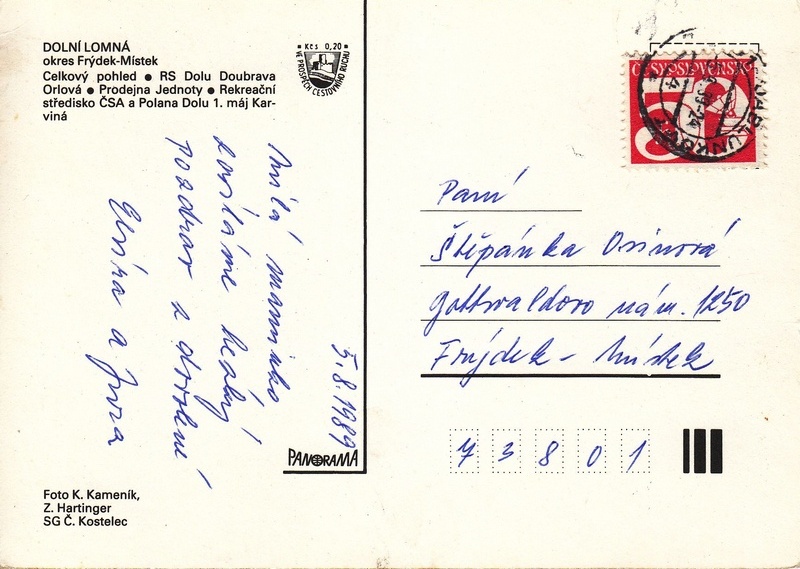 DOLNÍ LOMNÁ
okres Frýdek-Místek
Celkový pohled ● RS Dolu Doubrava
Orlová ● Prodejna Jednoty ● Rekreační
středisko ČSA a Polana Dolu 1. máj Kar-
viná
Kčs 0,20
VE PROSPĚCH CESTOVNÍHO RUCHU
5.8.1989
Milá maminko
zasíláme hezký
pozdrav z dovolené
a Jura
PANORAMA
Foto K. Kameník,
Z. Hartinger
SG Č. Kostelec
ČESKOSLOVENSKO
Paní
Štěpánka Osinová
Gottwaldovo nám. 1250
Frýdek - Místek
73801